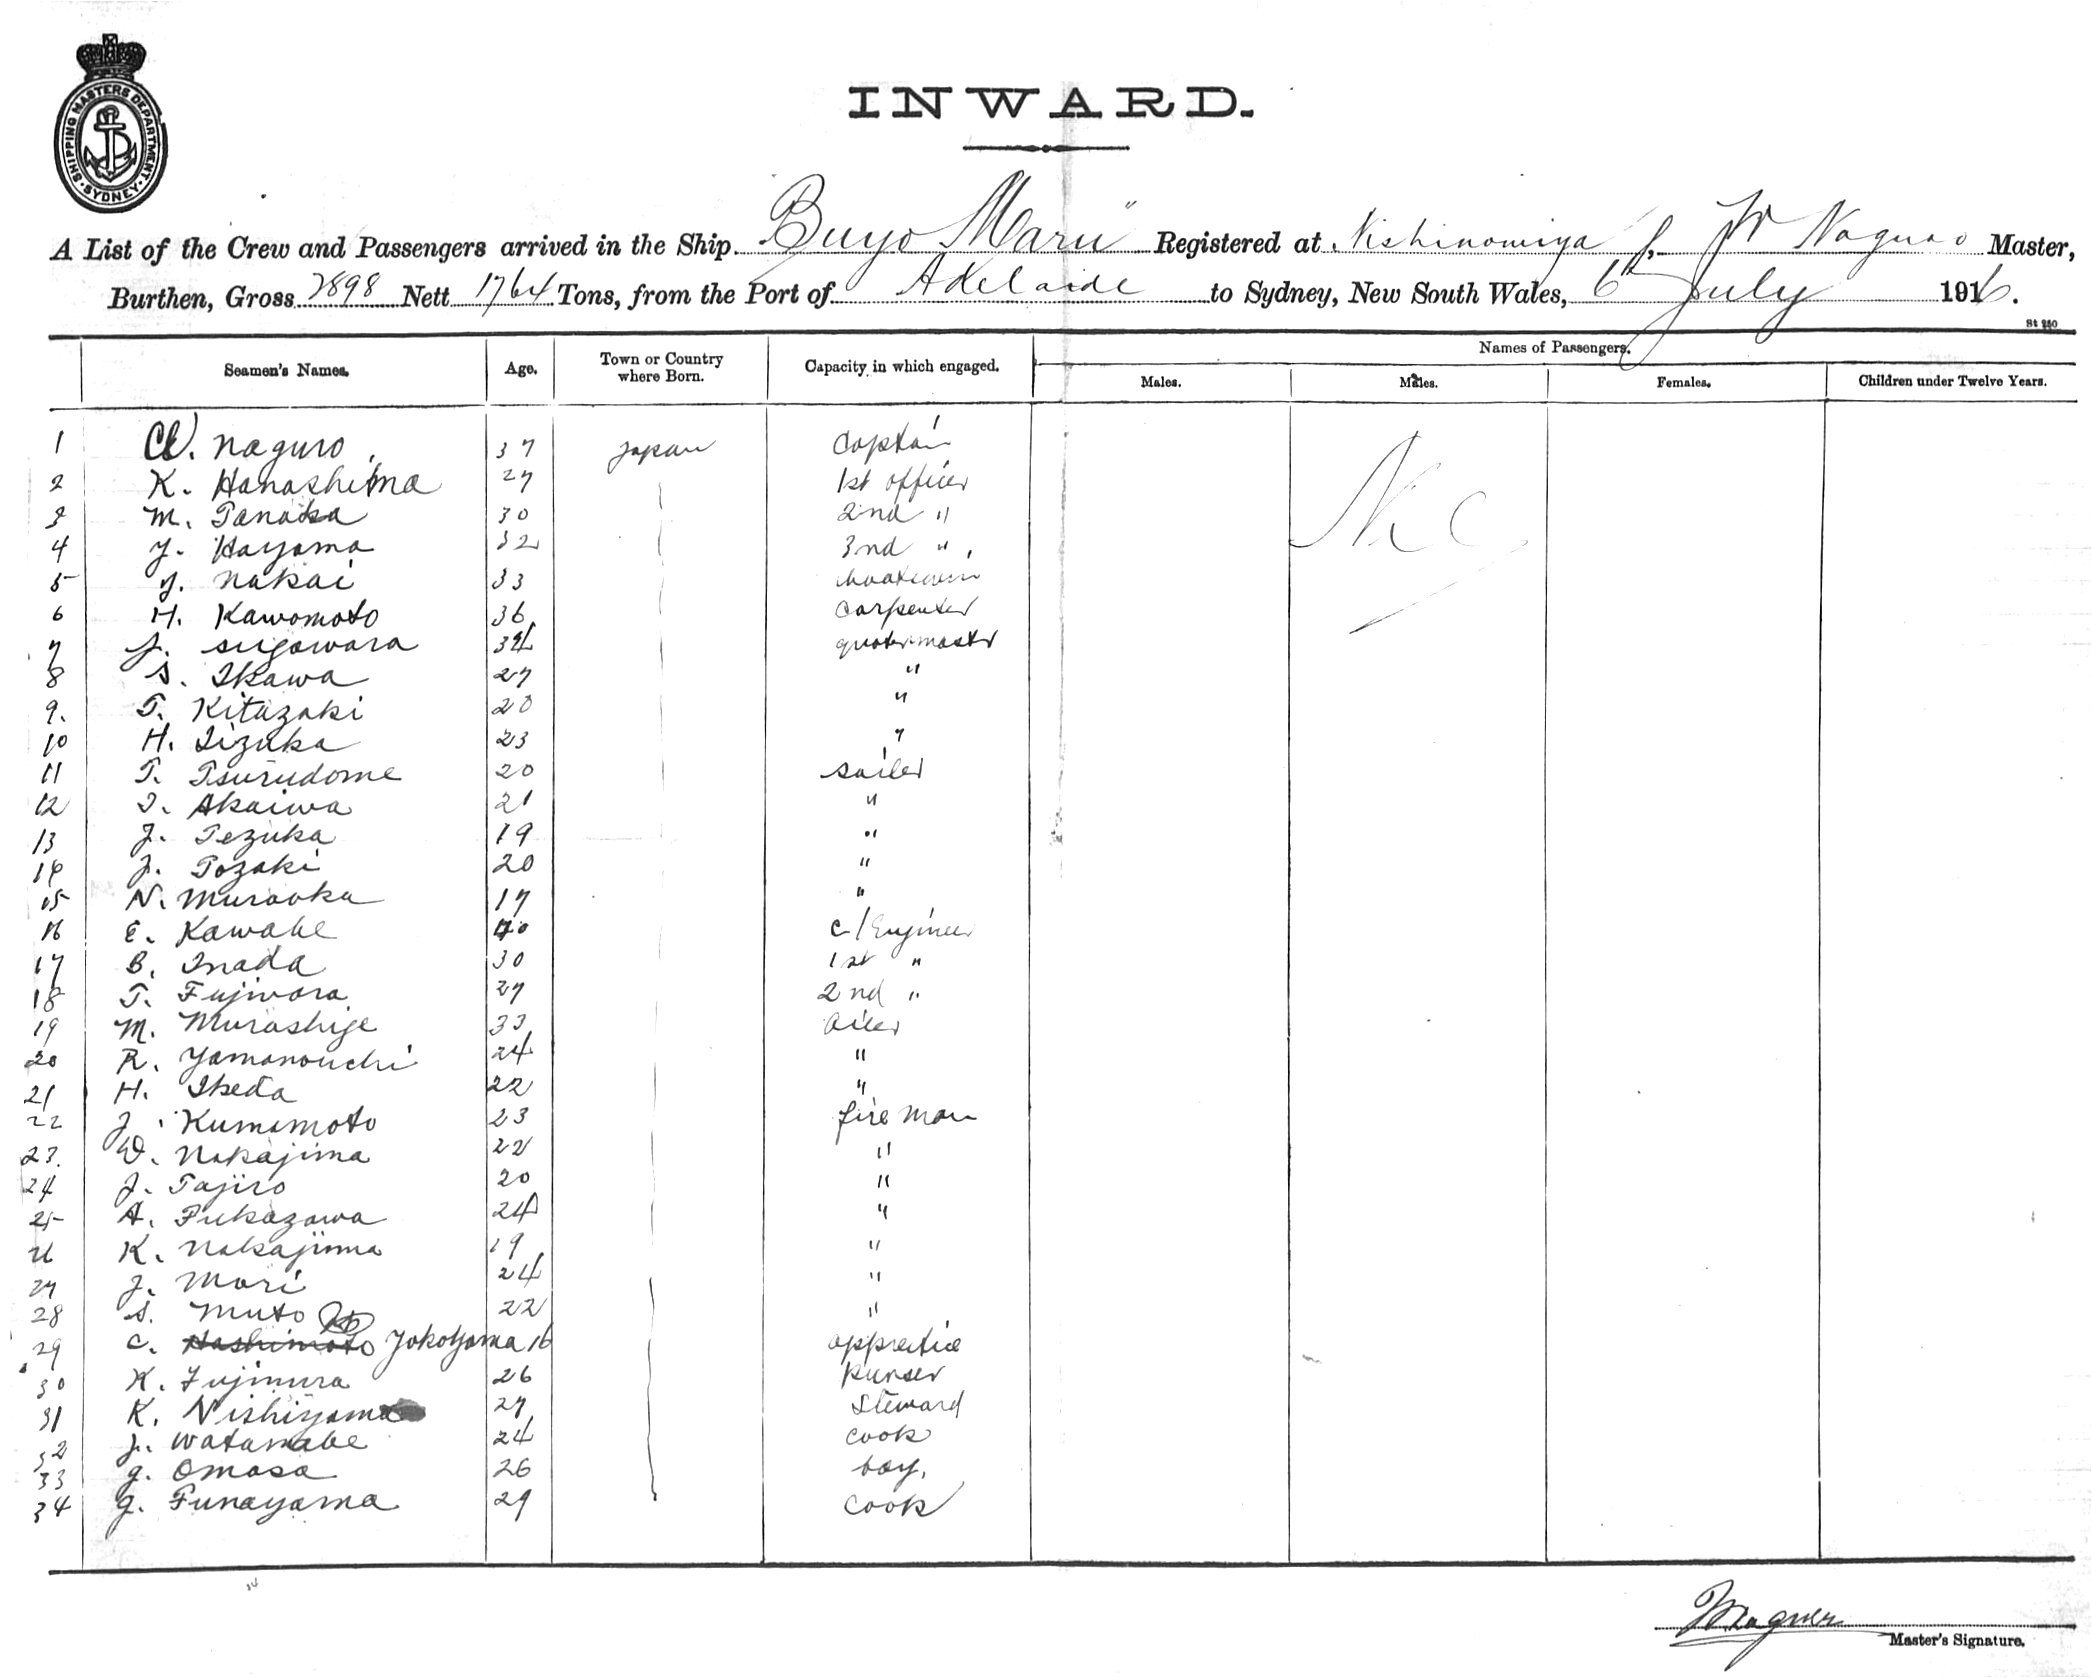 SHIPPING MASTERS DEPARTMENT · SYDNEY ·
INWARD.
A List of the Crew and Passengers arrived in the Ship Buyo Maru Registered at Nishinomiya Master,
Burthen, Gross 2898 Nett 1764 Tons, from the Port of Adelaide to Sydney, New South Wales, 6th July 1916.
St 250
Seamen's Names. Age. Town or Country where Born. Capacity in which engaged. Names of Passengers.
Males. Males. Females. Children under Twelve Years.
1 W. Naguro 37 Japan Captain
2 K. Hanashima 27 1st officer
3 M. Tanaka 30 2nd "
4 Y. Hayama 32 3nd "
5 Y. Nakai 33
6 H. Kawomoto 36 Carpenter
7 J. Sugawara 34 quotermaster
8 S. Ikawa 27 "
9. T. Kitazaki 20 "
10 H. Iizuka 23 "
11 T. Tsurudome 20 sailer
12 I. Akaiwa 21 "
13 J. Tezuka 19 "
14 J. Tozaki 20 "
15 N. Muraoka 17 "
16 E. Kawabe 40 C/Engineer
17 B. Inada 30 1st "
18 T. Fujiwara 27 2nd "
19 M. Murashige 33 Oiler
20 R. Yamanouchi 24 "
21 H. Ikeda 22 "
22 J. Kumamoto 23 fire man
23. W. Nakajima 22 "
24 J. Tajiro 20 "
25 A. Fukazawa 24 "
26 K. Nakajima 19 "
27 J. Mori 24 "
28 S. Muto 22 "
29 C. Hashimoto Yokoyama 16 apprentice
30 K. Fujimura 26 Purser
31 K. Nishiyama 27 Steward
32 J. Watanabe 24 cook
33 G. Omasa 26 boy.
34 G. Funayama 29 cook
34
Master's Signature.